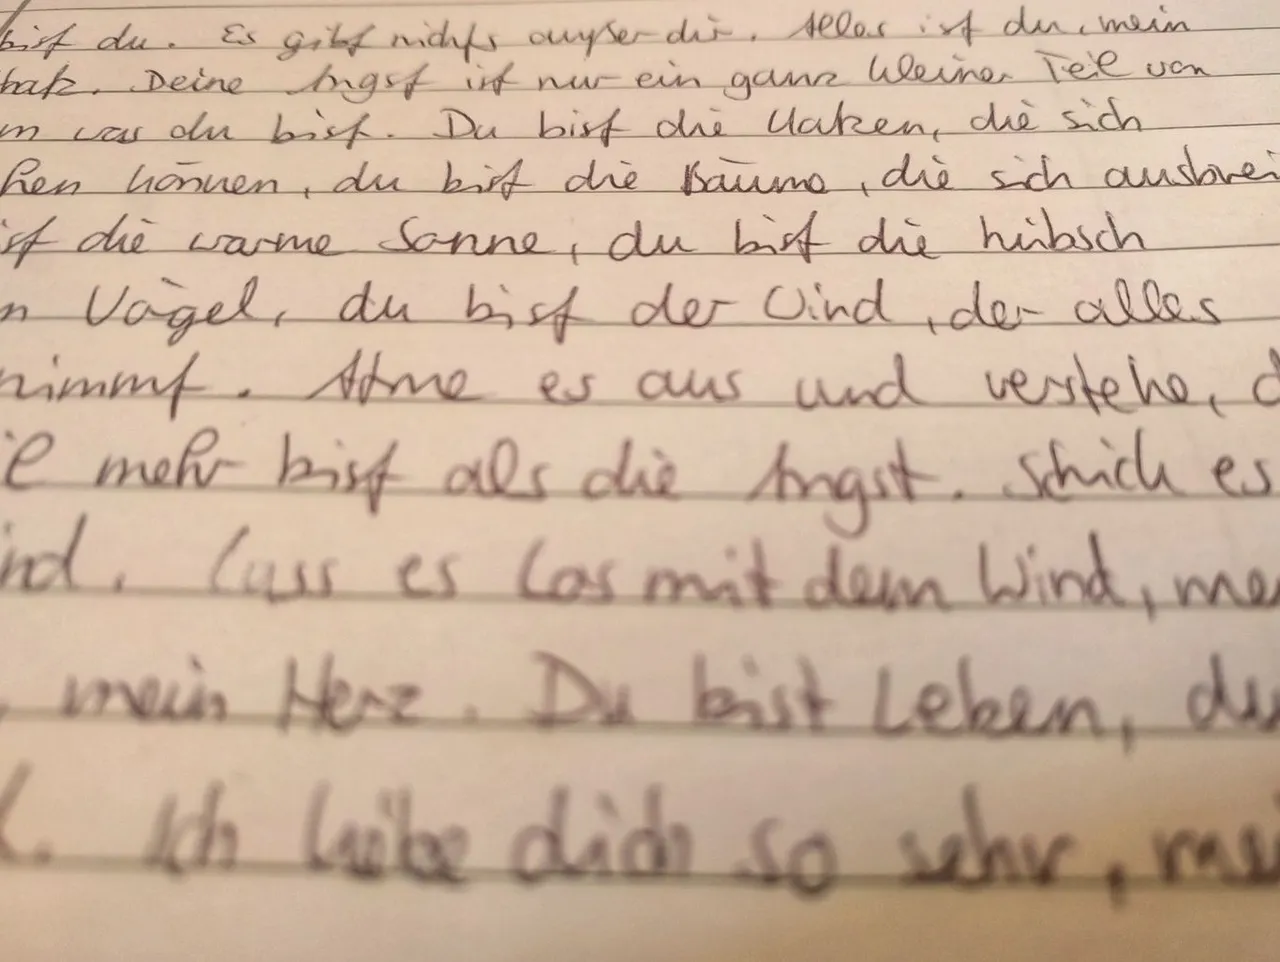 bist du. Es gibt nichts außer dir. Alles ist du, mein
hatz. Deine Angst ist nur ein ganz kleiner Teil von
m was du bist. Du bist die Katzen, die sich
hen können, du bist die Bäume, die sich ausbrei
ist die warme Sonne, du bist die hübsch
n Vögel, du bist der Wind, der alles
nimmt. Atme es aus und verstehe, d
il mehr bist als die Angst. Schick es
ind. Lass es los mit dem Wind, mei
, mein Herz. Du bist Leben, du
. Ich liebe dich so sehr, mei